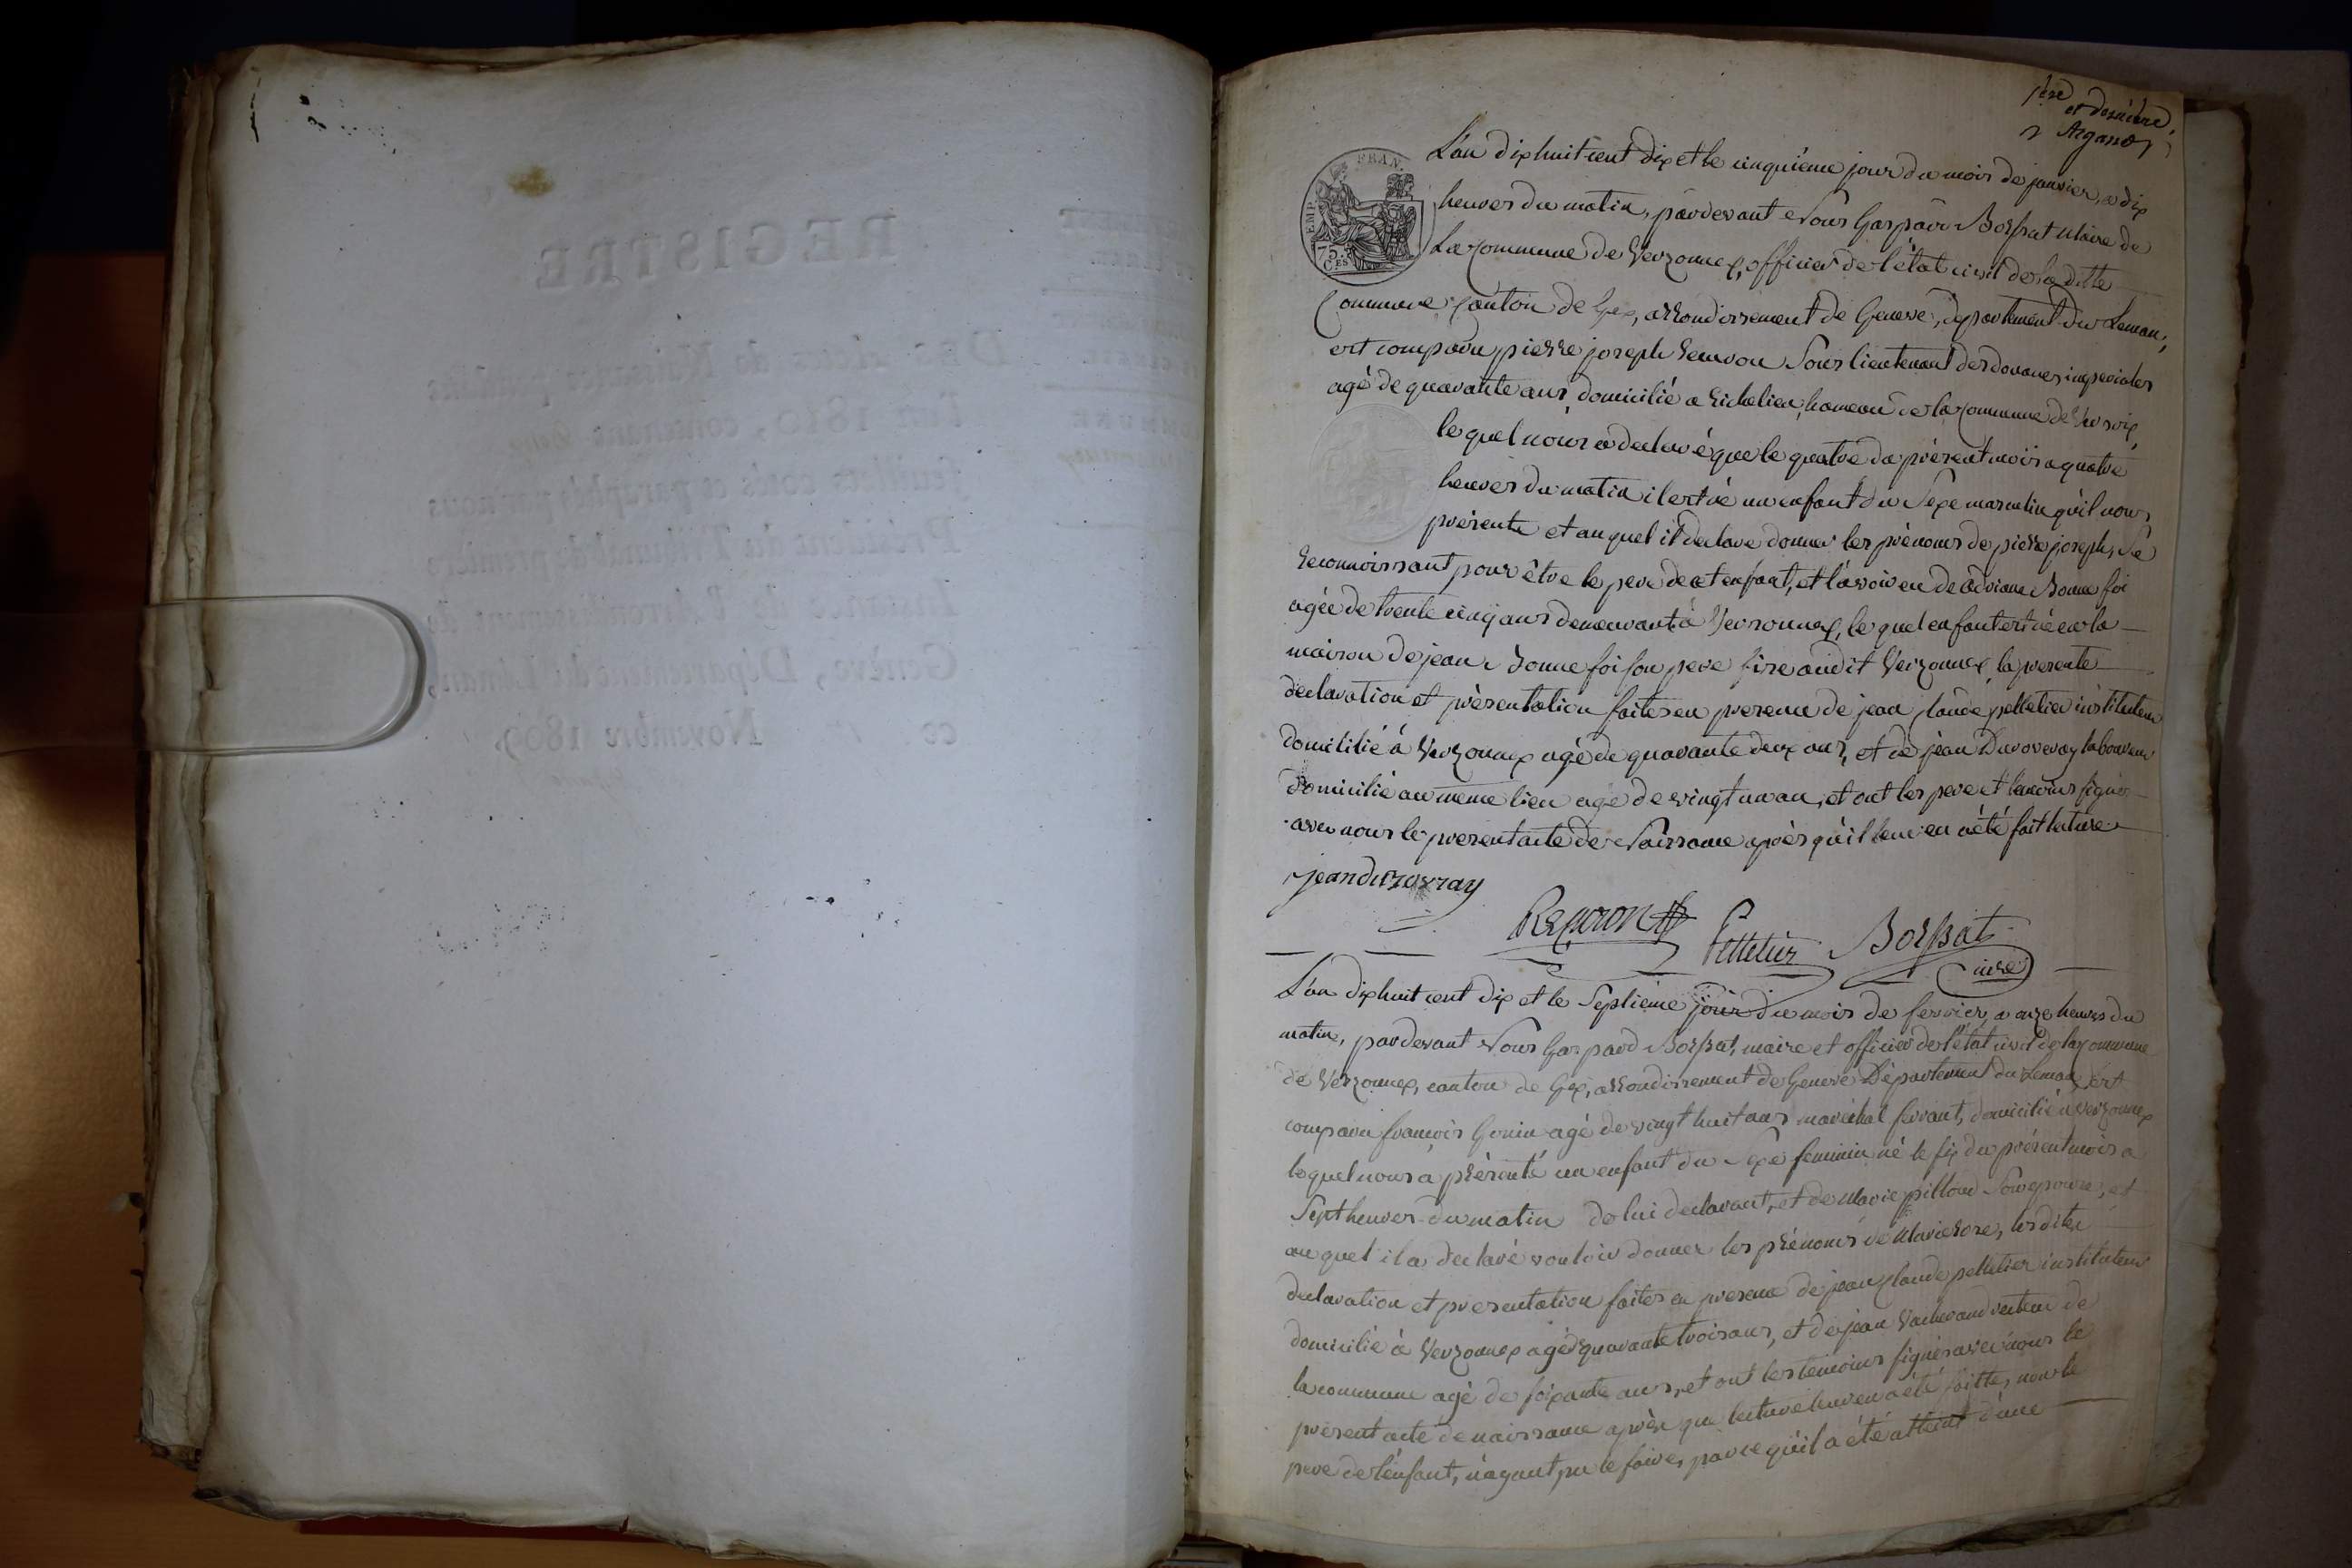 REGISTRE
Novembre 1809.
1ere
et dernière
Argand
EMP. FRAN.
75
CES
L'an dix huit cent dix et le cinquième jour du mois de janvier, a dix
heures du matin, pardevant Nous Gaspard Borssat Maire de
La Commune de Verzonnex, officier de l'état civil de la ditte
Commune Canton de Gex, arrondissement de Geneve, département du Leman,
est comparu pierre joseph Sous lieutenant des douanes imperiales
agé de quarante ans domicilié a richelieu, hameau de la Commune de Versoix,
le quel nous a declaré que le quatre du présent mois a quatre
heures du matin il est né un enfant du Sexe masculin qu'il nous
présente et auquel il declare donner les prénoms de pierre joseph, Se
reconnoissant pour être le pere de cet enfant, et l'avoir eu de Bonne foi
agée de trente cinq ans demeurant à Versonnex, le quel enfant est né en la
maison de jean Bonne foi son pere sise audit Verzonnex, la presente
declaration et présentation faites en presence de jean Claude pelletier instituteur
domicilié à Verzonnex agé de quarante deux ans, et de jean Duvoveray laboureur
domicilié au même lieu agé de vingt un an, et ont les pere et temoins signés
avec nous le present acte de Naissance après qu'il leur en a été fait lecture
jean duvovray
Pelletier Borssat
mre
L'an dix huit cent dix et le Septième jour du mois de fevrier, a onze heures du
matin, pardevant Nous Gaspard Borssat, maire et officier de l'état civil de la Commune
de Verzonnex, canton de Gex, arrondissement de Geneve Département du Leman, est
comparu françois Gonin agé de vingt huit ans maréchal ferrant, domicilié a Verzonnex
lequel nous a présenté un enfant du Sexe feminin né le six du présent mois a
Sept heures du matin de lui declarant, et de Marie pilloud et
au quel il a declaré vouloir donner les prénoms de Marie rose, les dites
declaration et presentation faites en presence de jean Claude pelletier instituteur
domicilié à Verzonnex agé de quarante trois ans, et de jean Vacherand de
la commune agé de soixante ans, et ont les temoins signés avec nous le
présent acte de naissance après que lecture leur en a été faitte, non le
pere de l'enfant, n'ayant pu le faire, parce qu'il a été atteint d'une